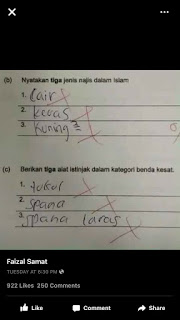 (b) Nyatakan tiga jenis najis dalam Islam
1. Cair
2. keras
3. kuning
(c) Berikan tiga alat istinjak dalam kategori benda kesat.
1. tukul
2. spana
3. spana laras
Faizal Samat
TUESDAY AT 8:30 PM
922 Likes 250 Comments
Like
Comment
Share